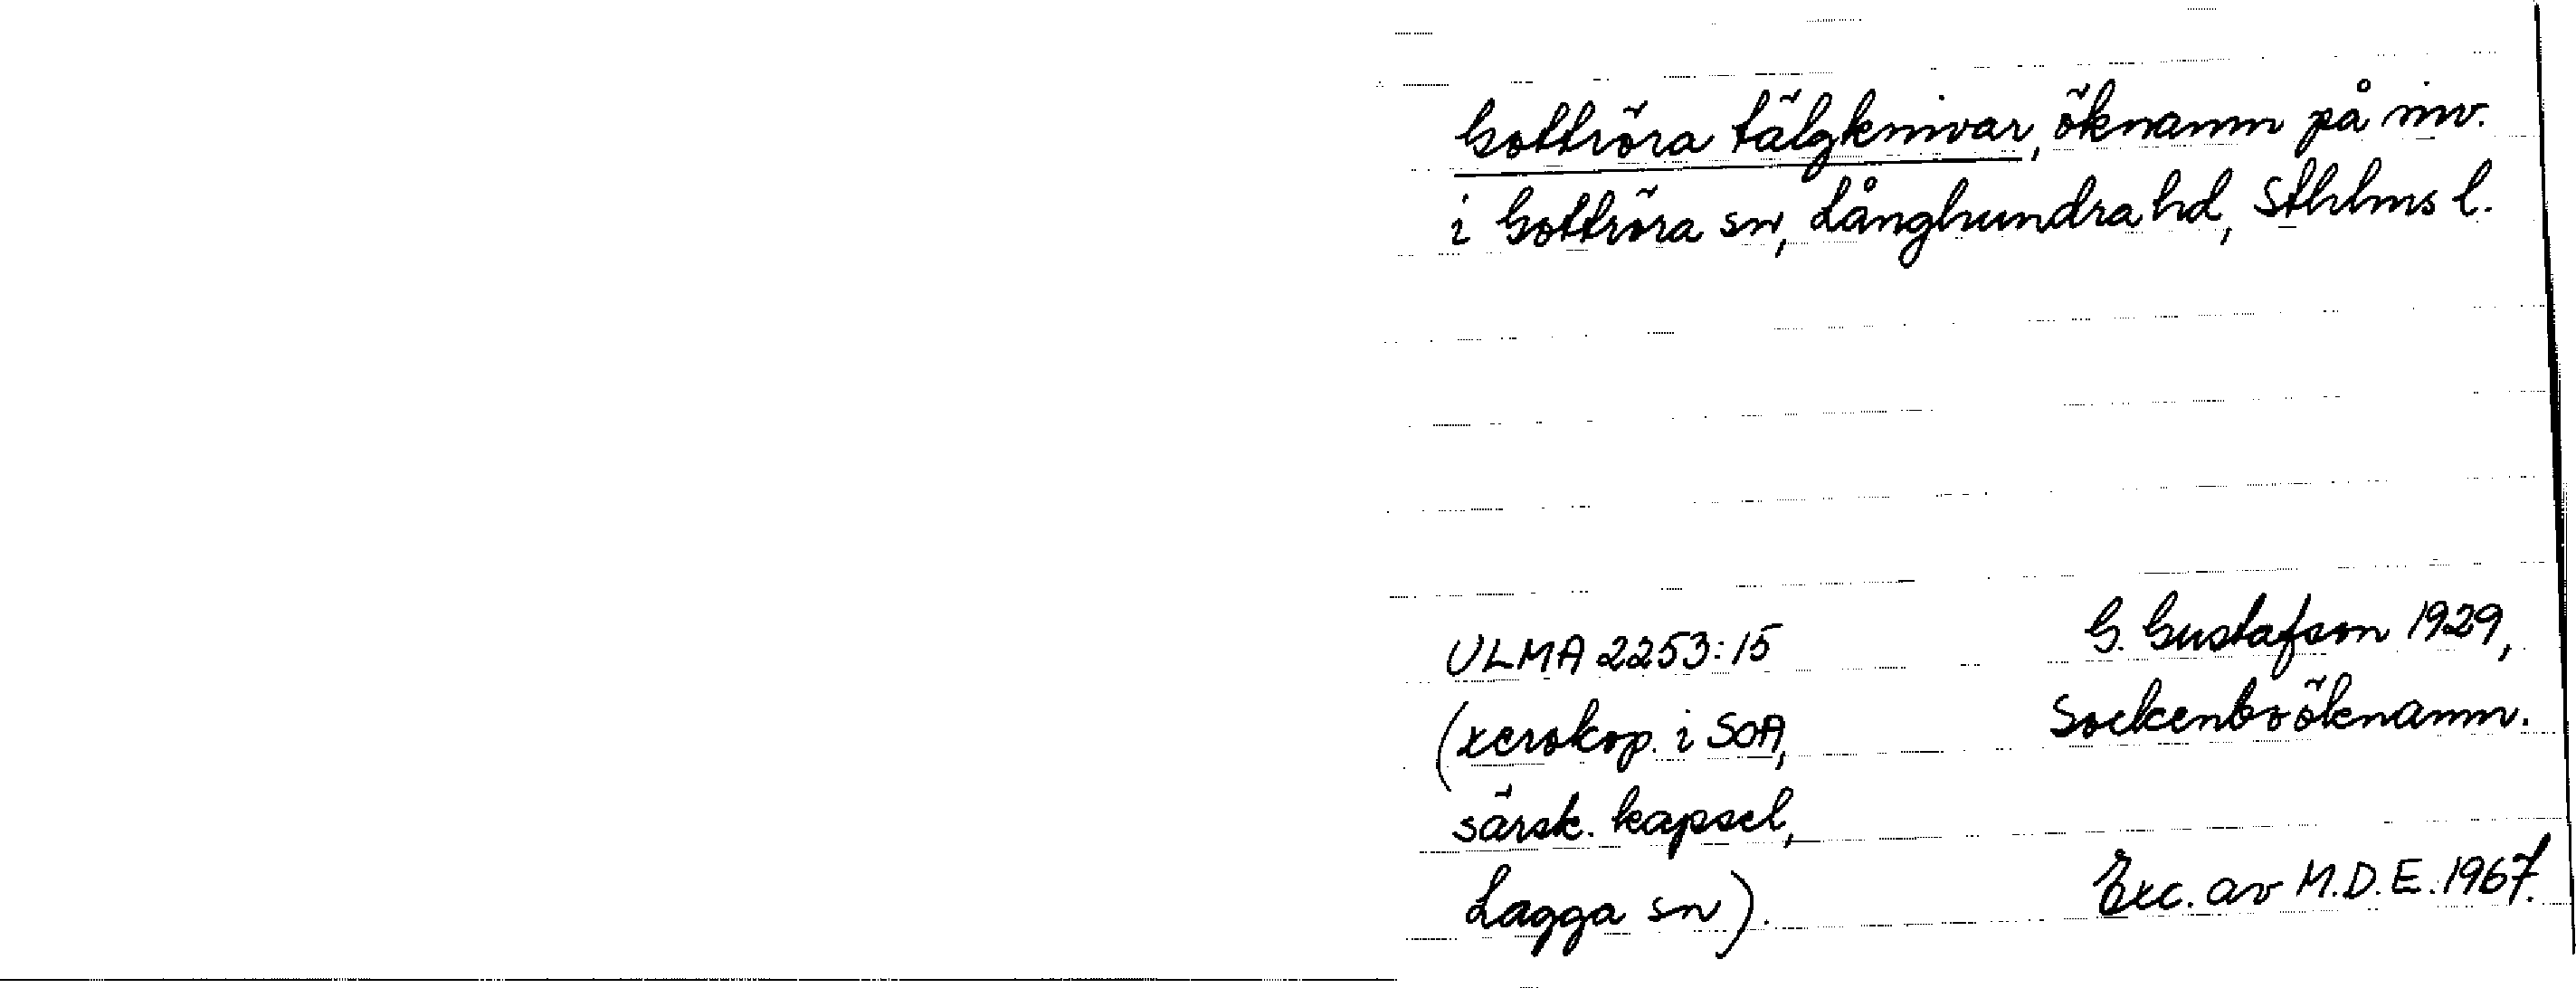 Gottröra tälgknivar, öknamn på inv.
i Gottröra sn, Långhundra hd, Sthlms l.
ULMA 2253:15
(xerokop. i SOA,
särsk. kapsel,
Lagga sn).
G. Gustafson 1929,
Sockenboöknamn.
Exc. av M.D.E. 1967.